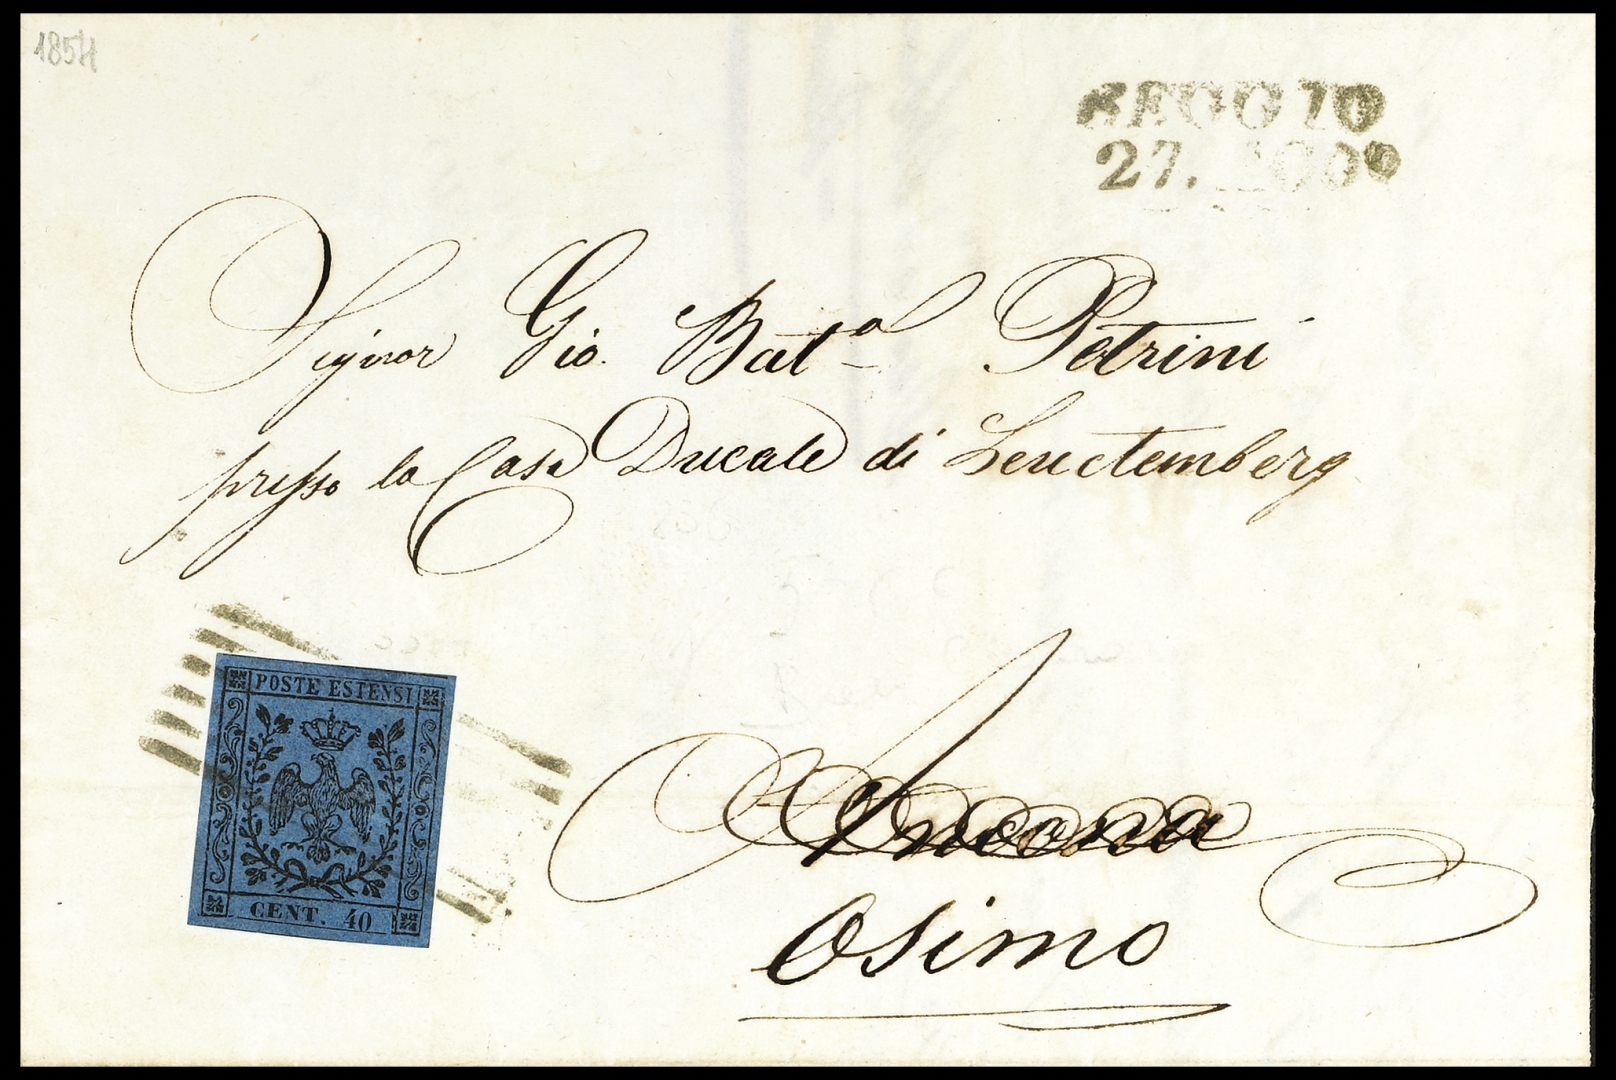 1854
REGGIO
27. AGO°
Signor Gio. Batt.a Petrini
presso la Casa Ducale di Leuctemberg
POSTE ESTENSI
CENT. 40
Ancona
Osimo